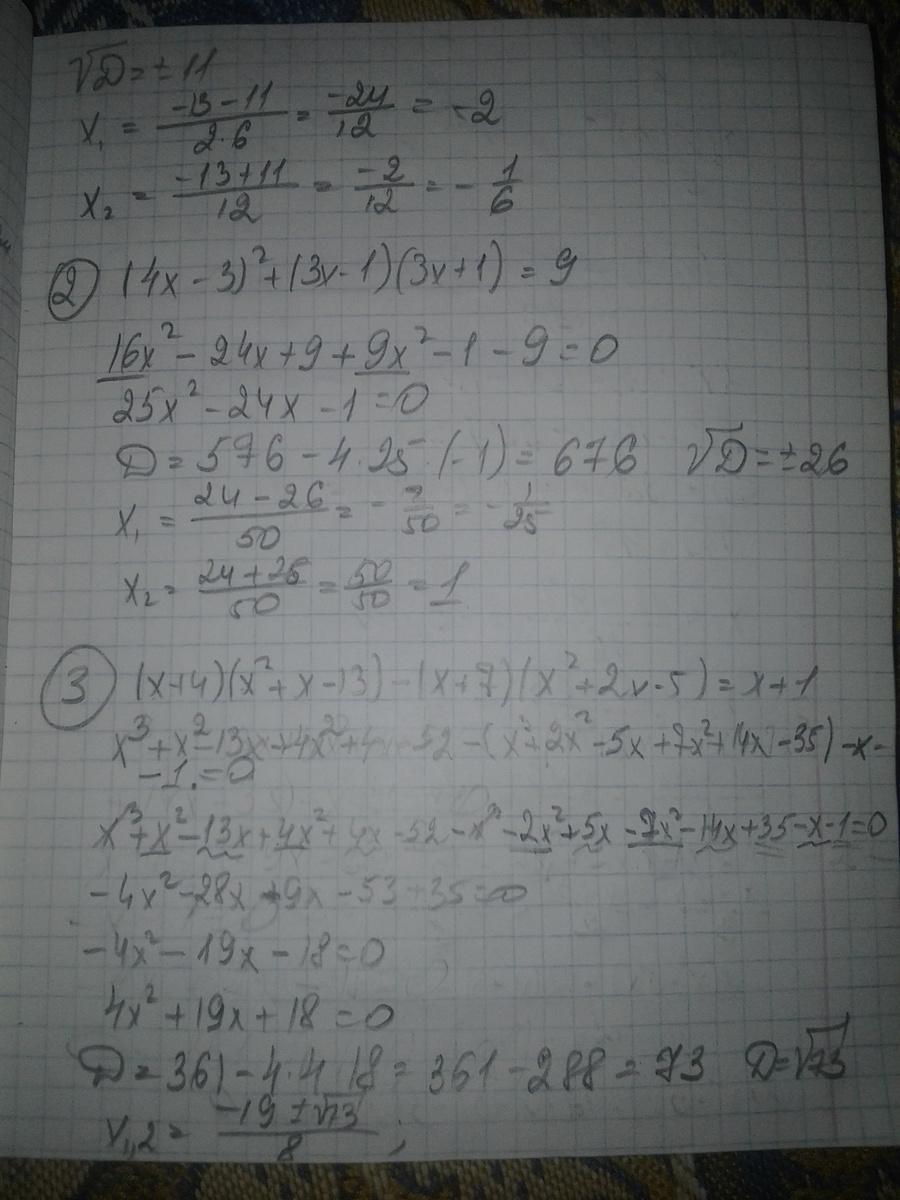 √D = ±11
x₁ = (-13-11)/(2·6) = -24/12 = -2
x₂ = (-13+11)/12 = -2/12 = -1/6
② (4x-3)²+(3x-1)(3x+1) = 9
16x²-24x+9+9x²-1-9=0
25x²-24x-1=0
D = 576-4·25·(-1) = 676 √D = ±26
x₁ = (24-26)/50 = -2/50 = -1/25
x₂ = (24+26)/50 = 50/50 = 1
③ (x+4)(x²+x-13)-(x+7)(x²+2x-5) = x+1
x³+x²-13x+4x²+4x-52-(x³+2x²-5x+7x²+14x-35)-x-
-1=0
x³+x²-13x+4x²+4x-52-x³-2x²+5x-7x²-14x+35-x-1=0
-4x²-28x+9x-53+35=0
-4x²-19x-18=0
4x²+19x+18=0
D = 361-4·4·18 = 361-288 = 73 D=√73
x₁,₂ = (-19±√73)/8 ;